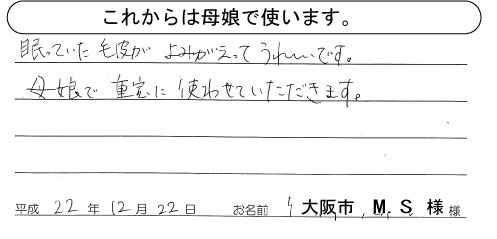 これからは母娘で使います。
眠っていた毛皮が よみがえって うれしいです。
母娘で 重宝に 使わせていただきます。
平成 22 年 12 月 22 日 お名前 大阪市, M. S 様 様